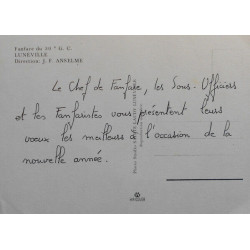 Fanfare du 30 ᵉ G. C.
LUNEVILLE
Direction: J. F. ANSELME
Le Chef de Fanfare, les Sous-Officiers
et les Fanfaristes vous présentent leurs
voeux les meilleurs à l'occasion de la
nouvelle année.